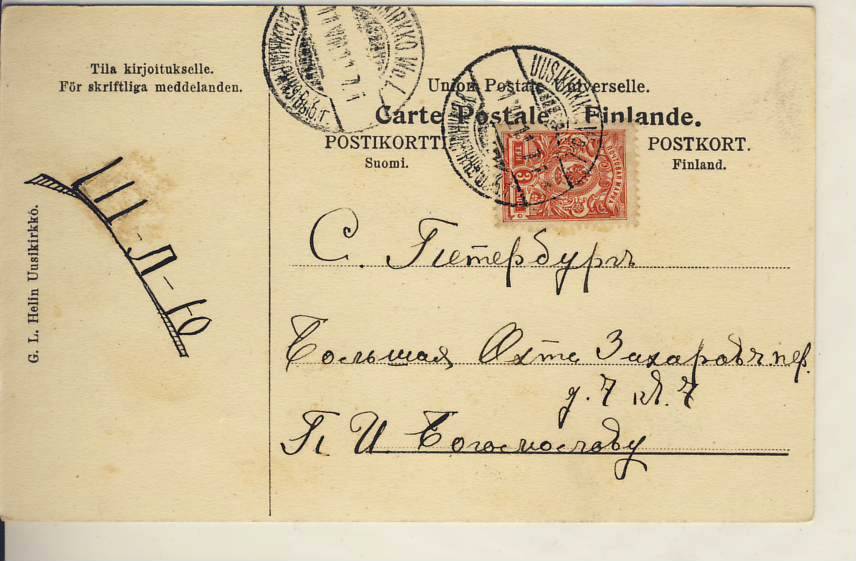 Tila kirjoitukselle.
För skriftliga meddelanden.
G. L. Helin Uusikirkko.
Ш-Л-Ю
Union Postale Universelle.
Carte Postale Finlande.
POSTIKORTTI POSTKORT.
Suomi. Finland.
UUSIKIRKKO W.l.
UUSIKIRKKO
3
С. Петербургъ
Большая Охта Захаровъ пер.
д. 7 кв. 7
П И Богословову